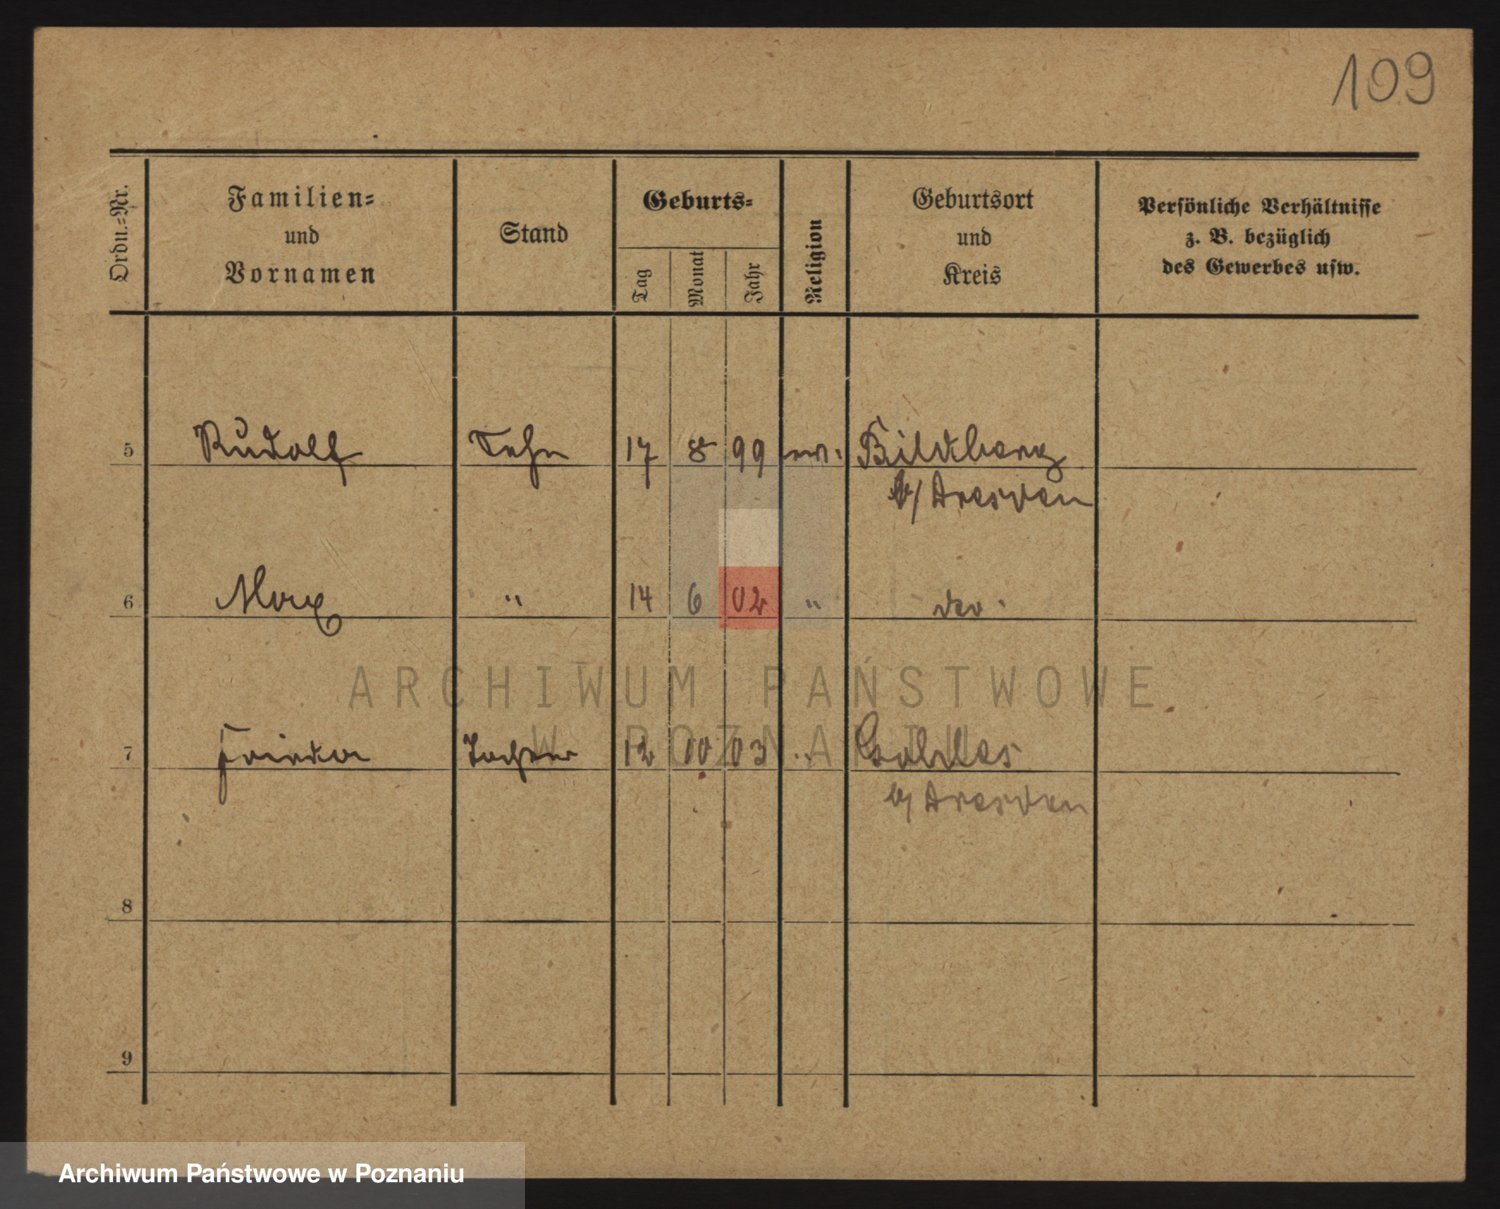 109
Ordn.-Nr.
Familien-
und
Vornamen
Stand
Geburts-
Tag
Monat
Jahr
Religion
Geburtsort
und
Kreis
Persönliche Verhältnisse
z. B. bezüglich
des Gewerbes usw.
5 Rudolf Sohn 17 8 99 ev.
b/ Dresden
6 Max " 14 6 02 " do.
ARCHIWUM PAŃSTWOWE
W POZNANIU
7 Frieda Tochter 12 10 03 "
b/ Dresden
8
9
Archiwum Państwowe w Poznaniu